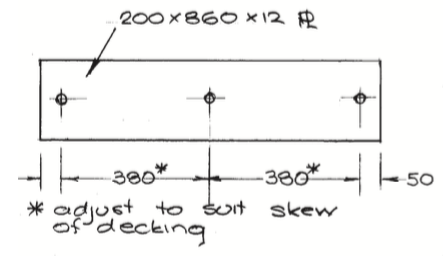 200×860×12 PL
380* 380* 50
* adjust to suit skew
of decking